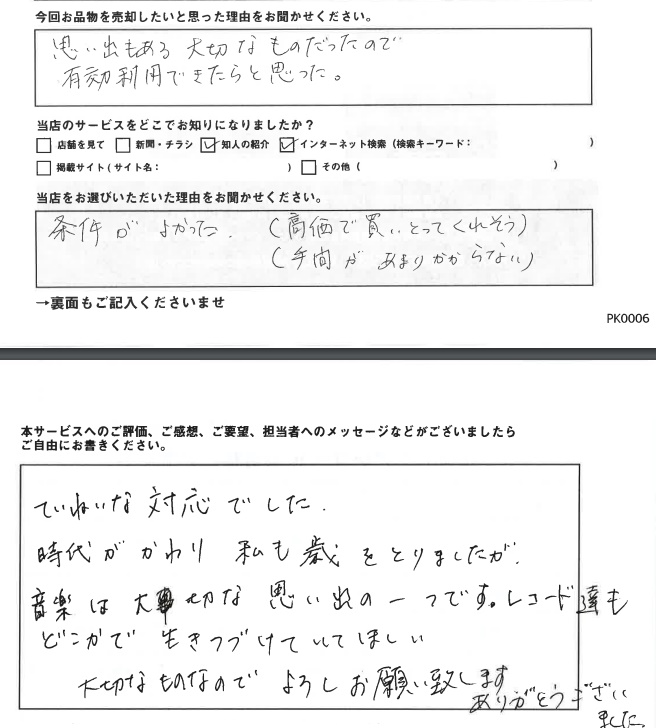 今回お品物を売却したいと思った理由をお聞かせください。
思い出もある 大切なものだったので
有効利用できたらと思った。
当店のサービスをどこでお知りになりましたか？
店舗を見て 新聞・チラシ 知人の紹介 インターネット検索（検索キーワード： ）
掲載サイト（サイト名： ） その他（ ）
当店をお選びいただいた理由をお聞かせください。
条件が よかった. （高価で買いとってくれそう）
（手間が あまりかからない）
→裏面もご記入くださいませ
PK0006
本サービスへのご評価、ご感想、ご要望、担当者へのメッセージなどがございましたら
ご自由にお書きください。
ていねいな対応でした.
時代が かわり 私も 歳をとりましたが.
音楽は大切な思い出の一つです。レコード達も
どこかで 生きつづけていてほしい
大切なものなので よろしくお願い致します
ありがとうござい
ました.